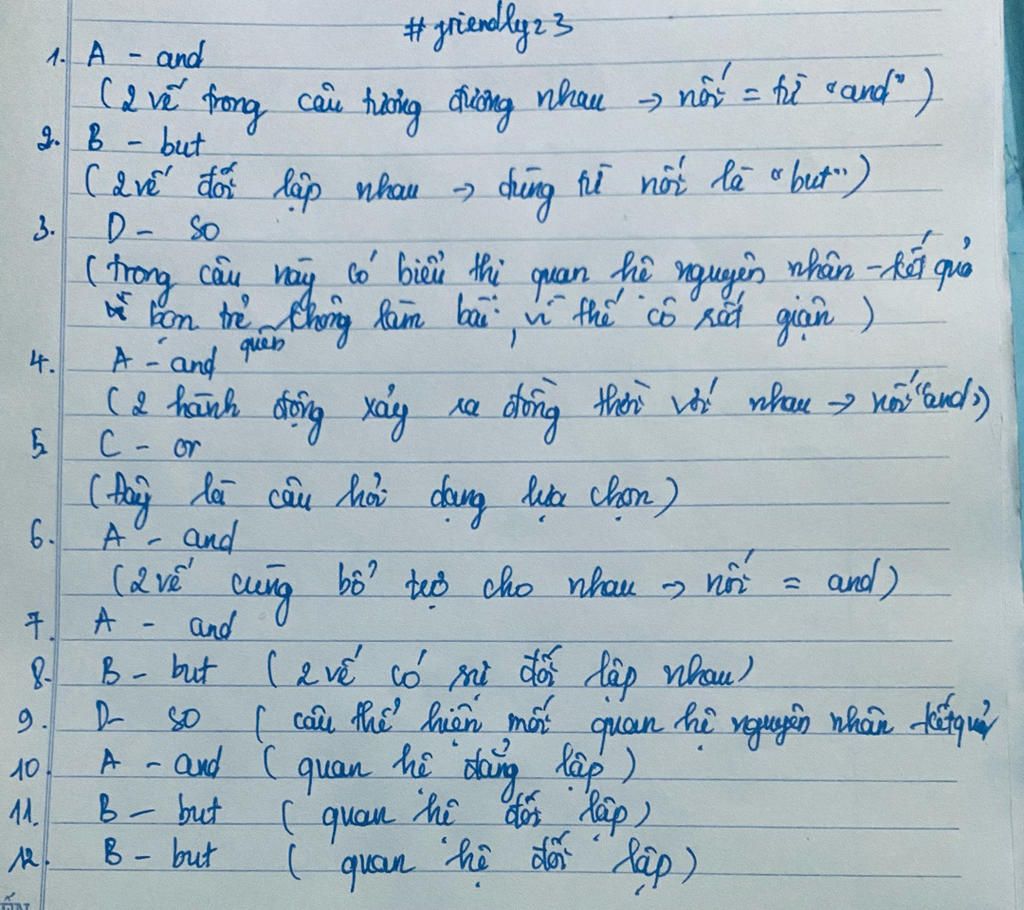 #friendly23
1. A - and
(2 vế trong câu tương đương nhau → nối = từ "and")
2. B - but
(2 vế đối lập nhau → dùng từ nối là "but")
3. D - so
(trong câu này có biểu thị quan hệ nguyên nhân - kết quả
bọn trẻ quên không làm bài, vì thế cô rất giận)
4. A - and
(2 hành động xảy ra đồng thời với nhau → nối "and")
5. C - or
(Đây là câu hỏi dạng lựa chọn)
6. A - and
(2 vế cùng bổ trợ cho nhau → nối = and)
7. A - and
8. B - but (2 vế có sự đối lập nhau)
9. D - so (câu thể hiện mối quan hệ nguyên nhân - kết quả
10. A - and (quan hệ đẳng lập)
11. B - but (quan hệ đối lập)
12. B - but (quan hệ đối lập)